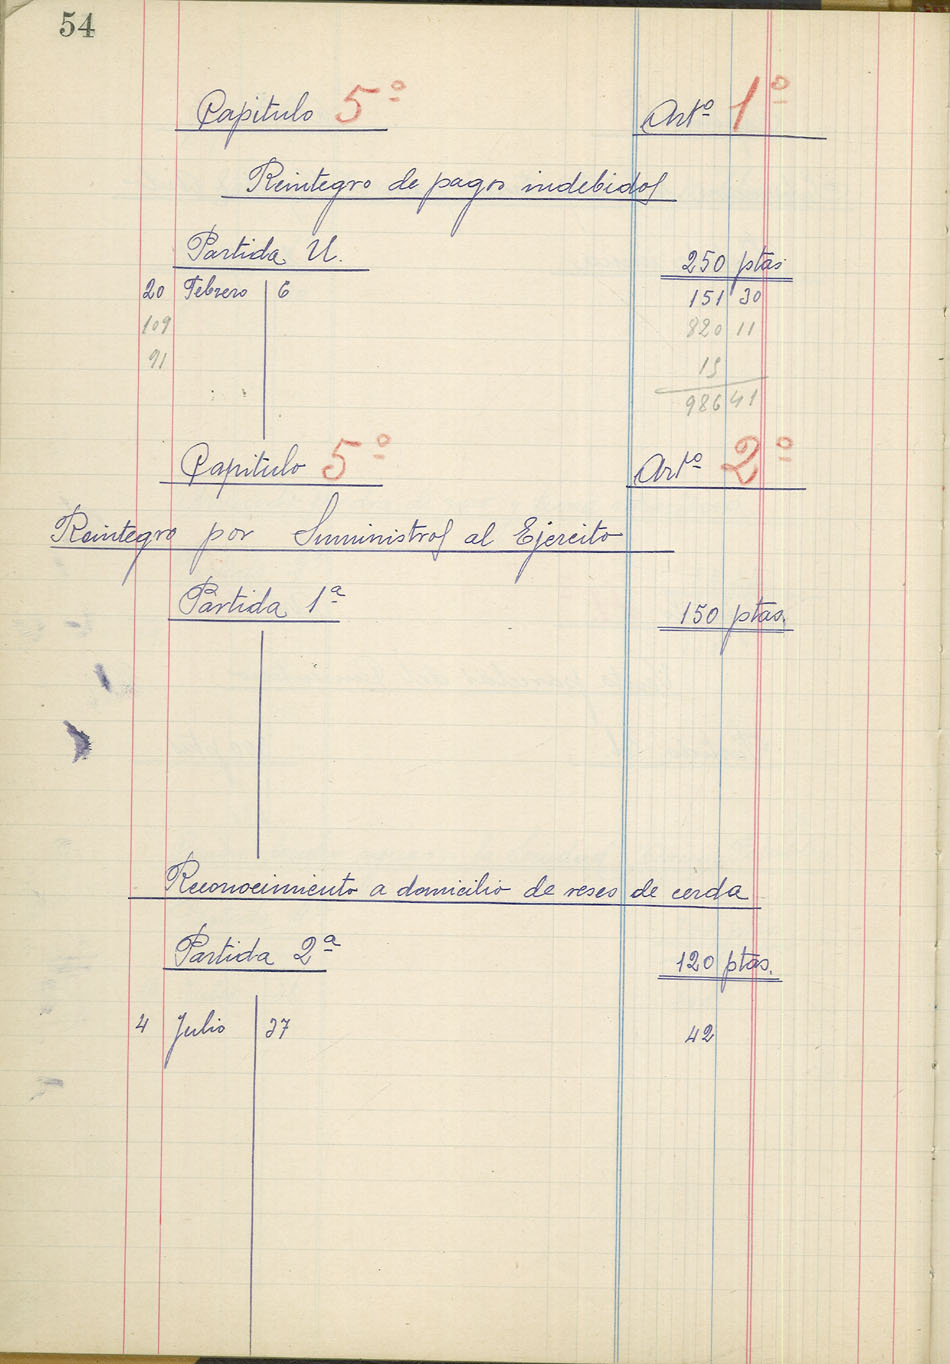 54
Capitulo 5º Artº 1º
Reintegro de pagos indebidos
Partida U. 250 ptas.
20 Febrero 6 151 30
109 820 11
91 15
986 41
Capitulo 5º Artº 2º
Reintegro por Suministros al Ejercito
Partida 1ª 150 ptas.
Reconocimiento a domicilio de reses de cerda
Partida 2ª 120 ptas.
4 Julio 27 42